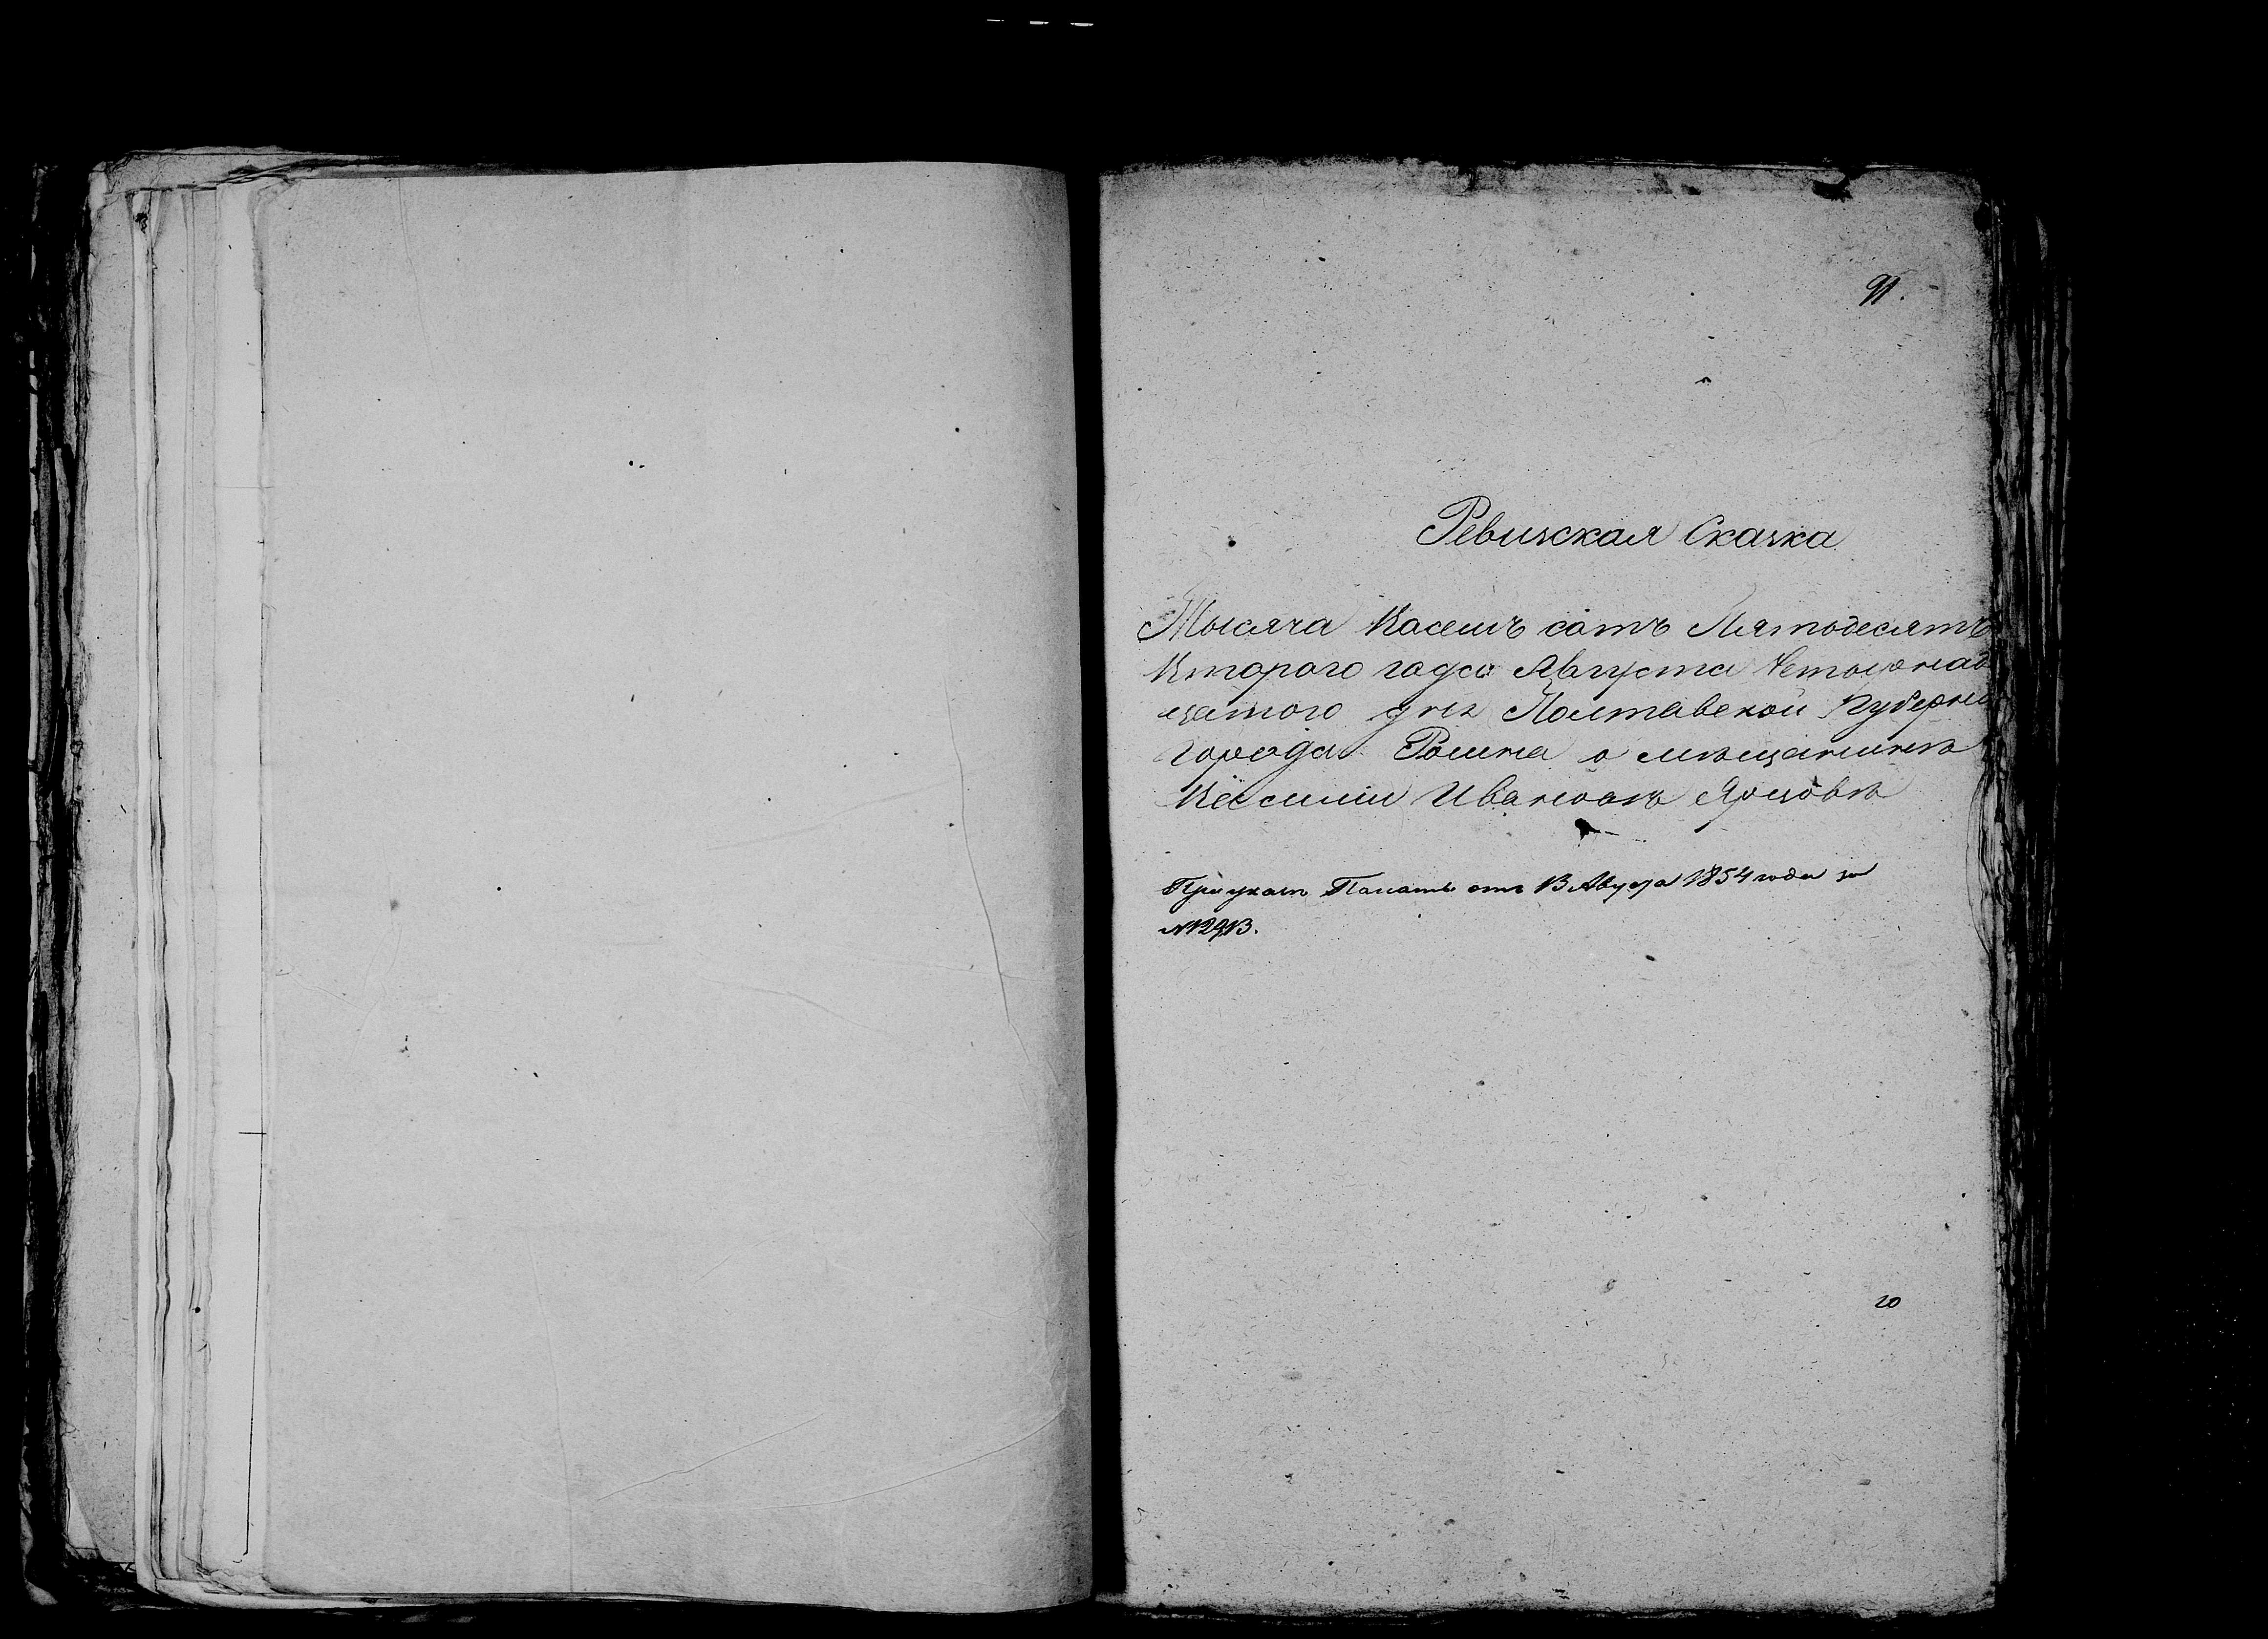 91.
Ревизская Сказка
Тысяча Восемъ сотъ Пятодесятъ
Втораго года Августа Четырнад
цатого дня Полтавской Губерніи
Города Ромна о мѣщанинѣ
Ивановѣ
При указѣ Палаты отъ 13 Августа 1854 года за
№ 12913.
20